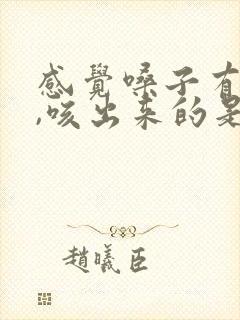 感覺嗓子有
,咳出來的是
趙曦臣